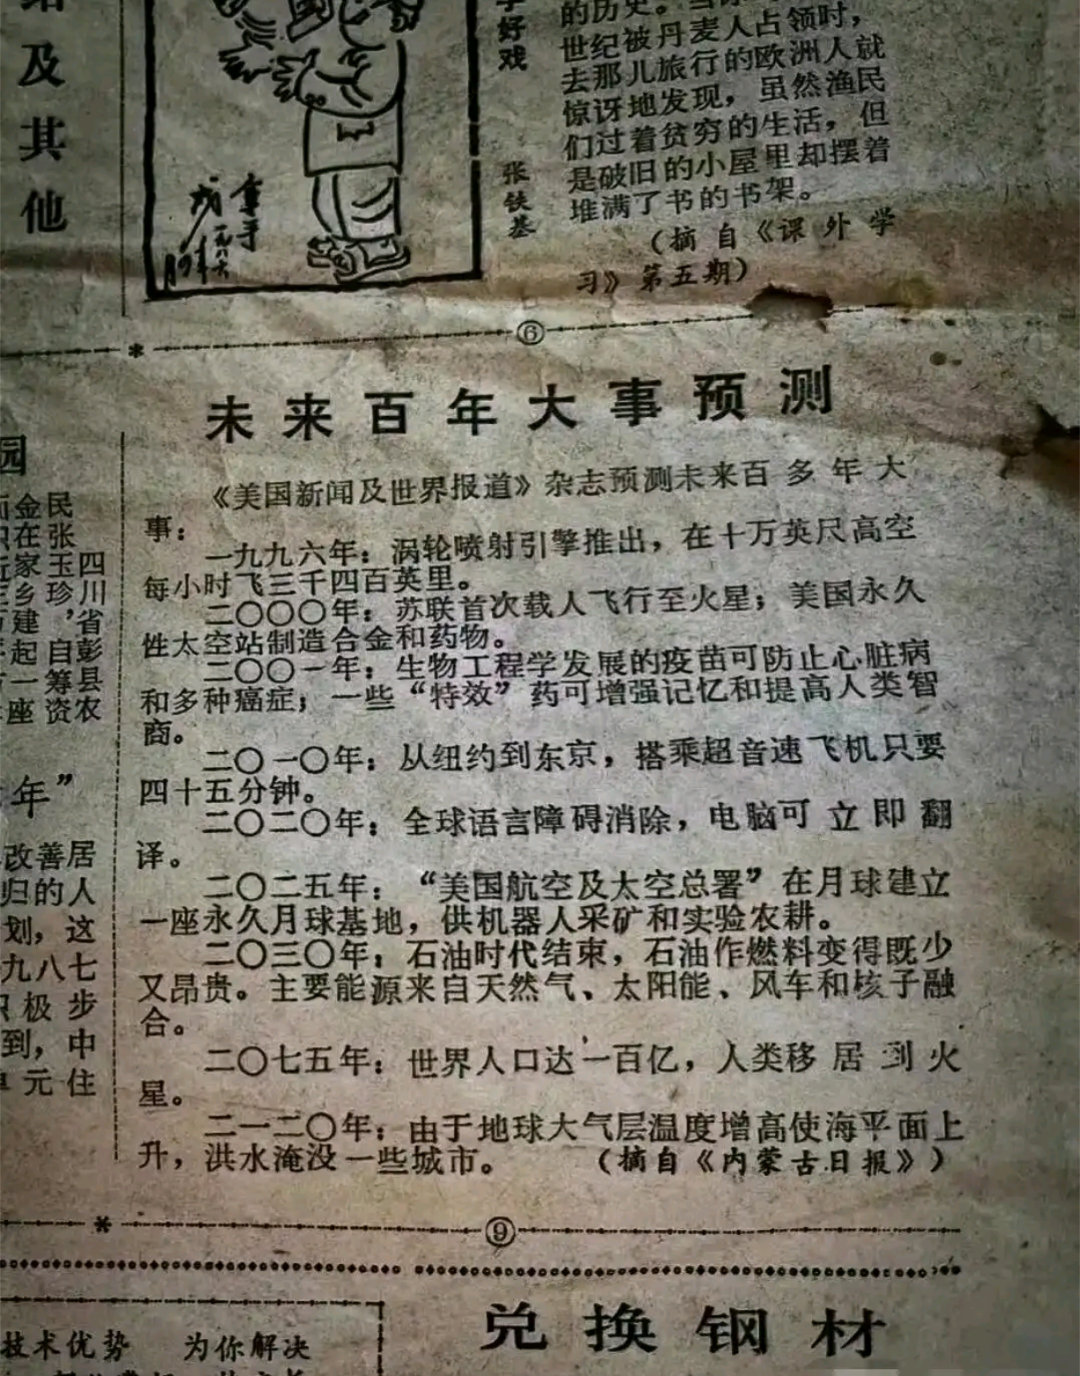 及
其
他
好
戏
张铁基
一九八六
世纪被丹麦人占领时，
去那儿旅行的欧洲人就
惊讶地发现，虽然渔民
们过着贫穷的生活，但
是破旧的小屋里却摆着
堆满了书的书架。
（摘自《课外学
习》第五期）
⑥
未来百年大事预测
《美国新闻及世界报道》杂志预测未来百多年大
事：
一九九六年：涡轮喷射引擎推出，在十万英尺高空
每小时飞三千四百英里。
二〇〇〇年：苏联首次载人飞行至火星；美国永久
性太空站制造合金和药物。
二〇〇一年：生物工程学发展的疫苗可防止心脏病
和多种癌症；一些“特效”药可增强记忆和提高人类智
商。
二〇一〇年：从纽约到东京，搭乘超音速飞机只要
四十五分钟。
二〇二〇年：全球语言障碍消除，电脑可立即翻
译。
二〇二五年：“美国航空及太空总署”在月球建立
一座永久月球基地，供机器人采矿和实验农耕。
二〇三〇年：石油时代结束，石油作燃料变得既少
又昂贵。主要能源来自天然气、太阳能、风车和核子融
合。
二〇七五年：世界人口达一百亿，人类移居到火
星。
二一二〇年：由于地球大气层温度增高使海平面上
升，洪水淹没一些城市。（摘自《内蒙古日报》）
⑨
园
四川省彭县农
民张玉珍，自筹资
金在家乡建起一座
年”
改善居
归的人
划，这
九八七
极步
到，中
单元住
技术优势 为你解决
兑换钢材